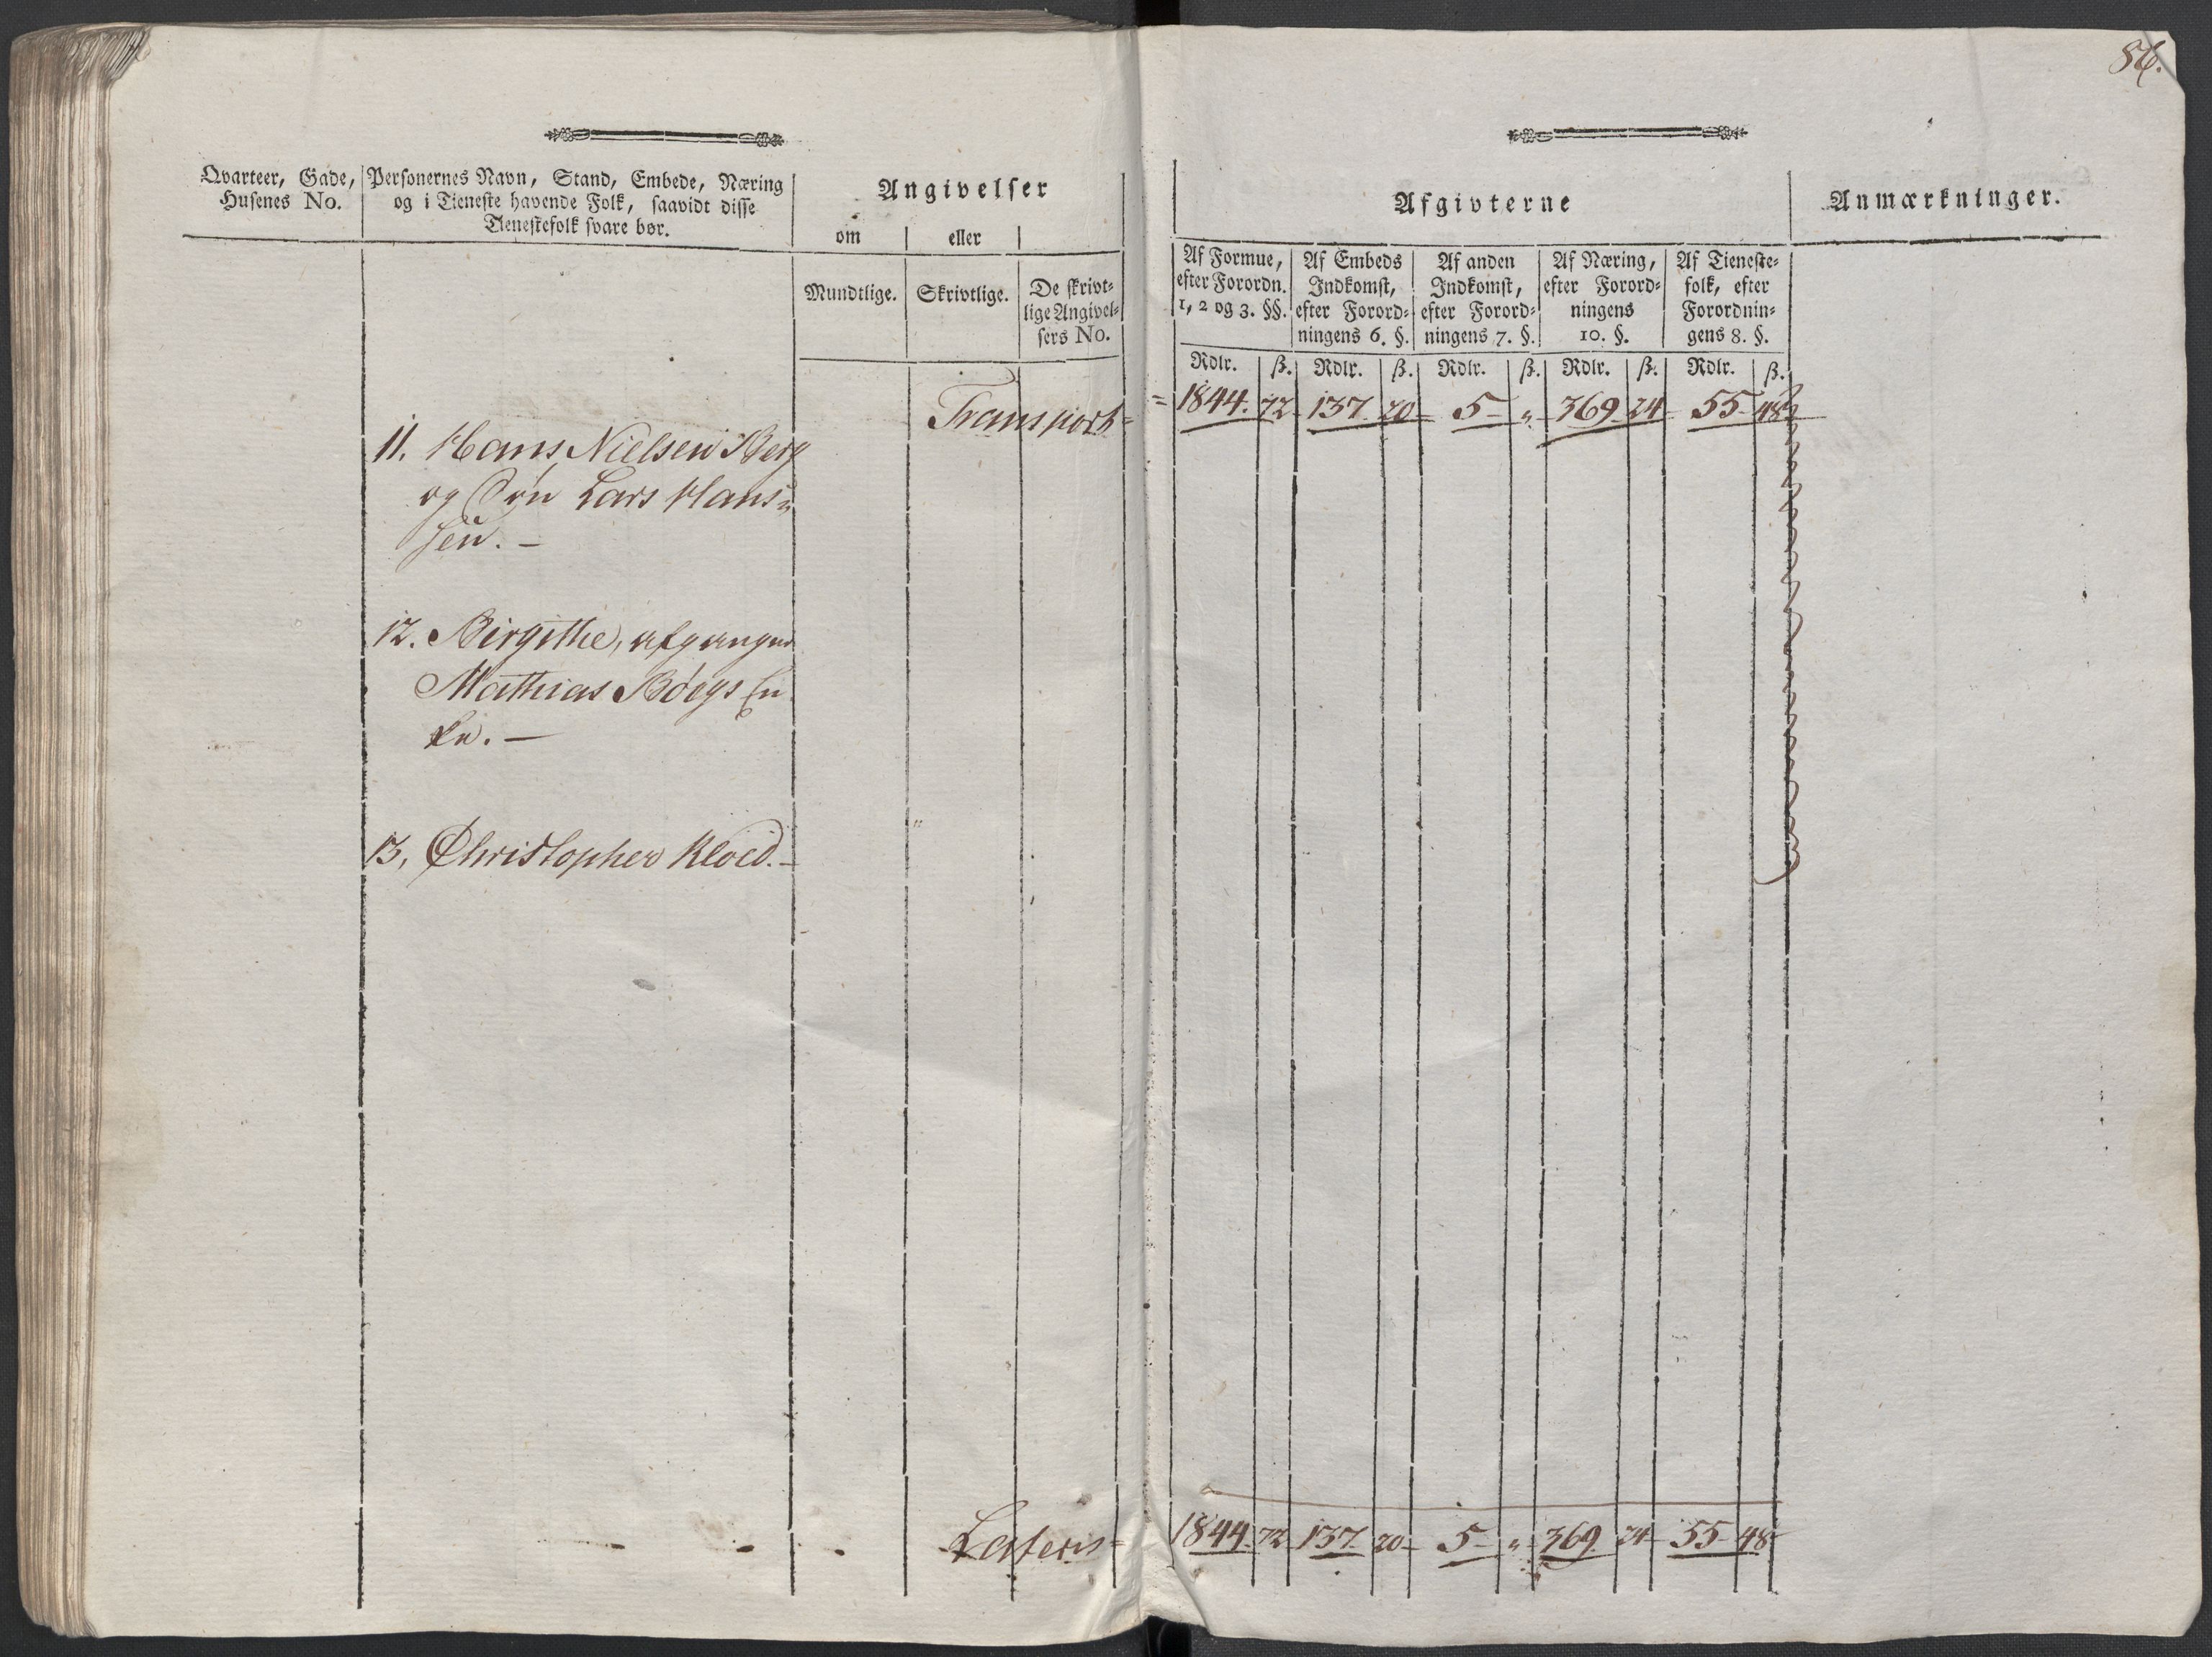 86.
Qvarteer, Gade,
Husenes No.
Personernes Navn, Stand, Embede, Næring
og i Tieneste havende Folk, saavidt disse
Tienestefolk svare bør.
Angivelser
om eller
Mundtlige.
Skrivtlige.
De skrivt-
lige Angivel-
sers No.
Afgivterne
Anmærkninger.
Af Formue,
efter Forordn.
1, 2 og 3. §§.
Af Embeds
Indkomst,
efter Forord-
ningens 6. §.
Af anden
Indkomst,
efter Forord-
ningens 7. §.
Af Næring,
efter Forord-
ningens
10. §.
Af Tieneste-
folk, efter
Forordnin-
gens 8. §.
Rdlr. ß. Rdlr. ß. Rdlr. ß. Rdlr. ß. Rdlr. ß.
Transport = 1844. 72 137. 20 5 " 369 24 55 48
11. Hans Nielsen Berg
og Søn Lars Hans-
sen. —
12. Birgithe, afgangne
Mathias Böegs En
ke. —
13, Christopher Kloed. —
Lateris 1844 72 137. 20 5 " 369 24 55 48